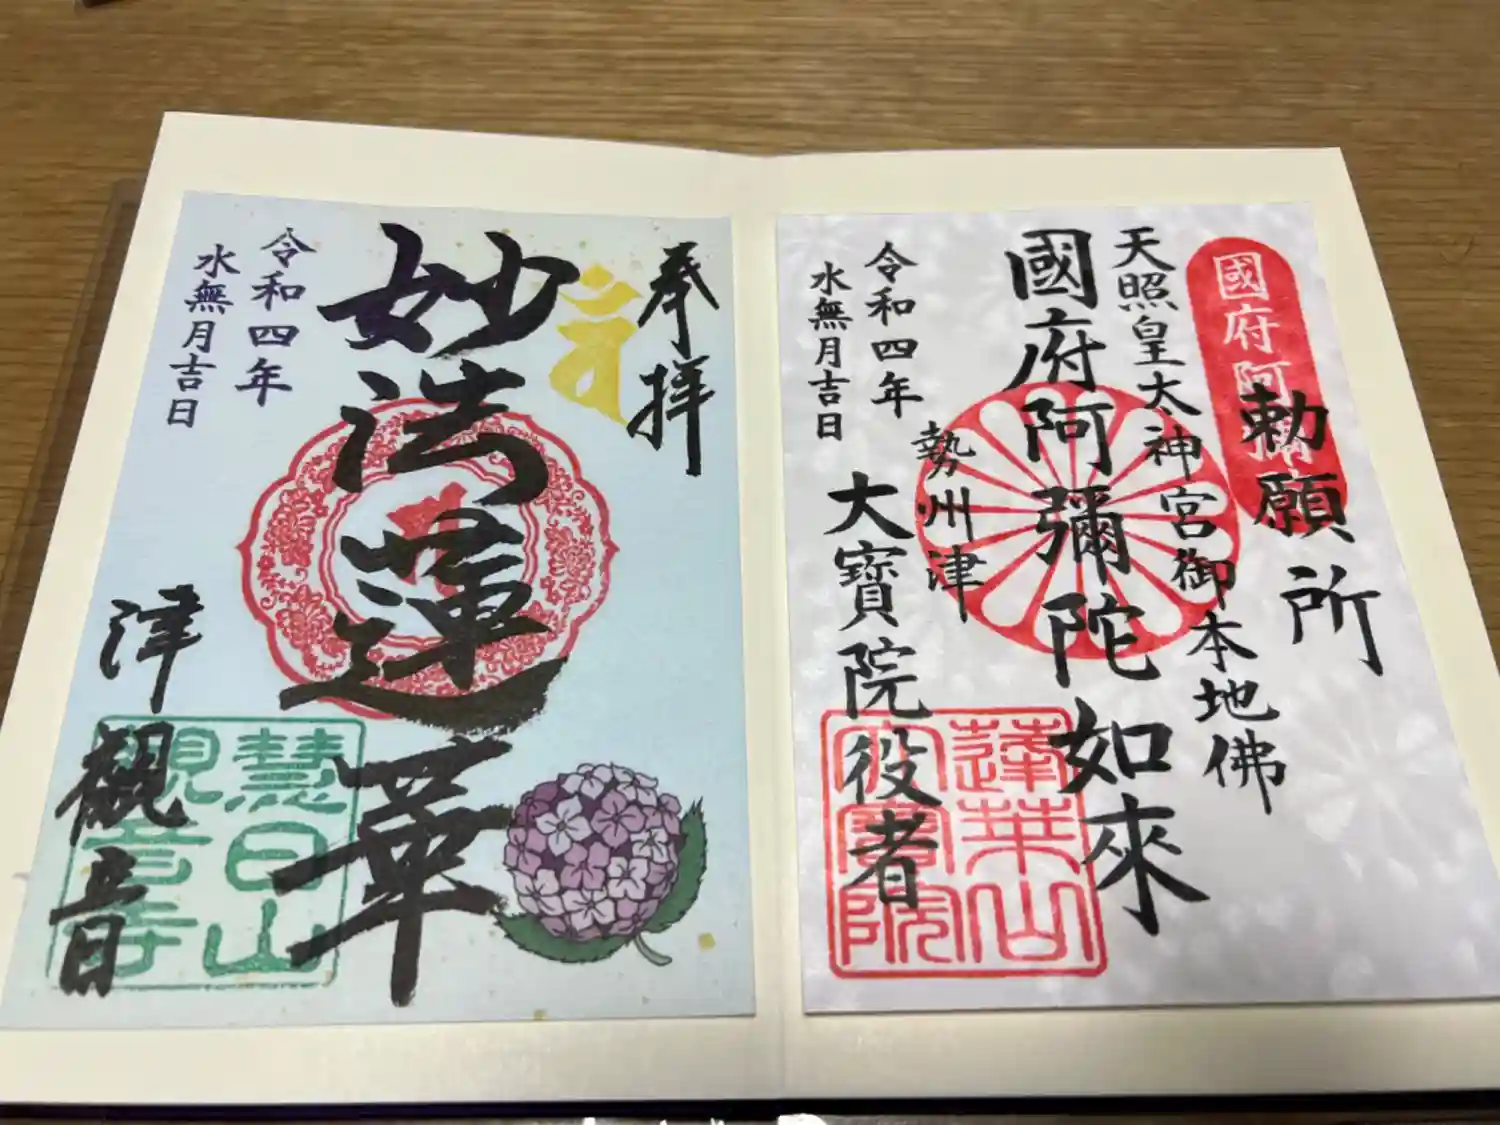 國府阿
勅願所
天照皇太神宮御本地佛
國府阿彌陀如來
勢州津
大寶院役者
令和四年
水無月吉日
蓮華山
大寶院
奉拝
妙法蓮華
令和四年
水無月吉日
津観音
慧日山
観音寺